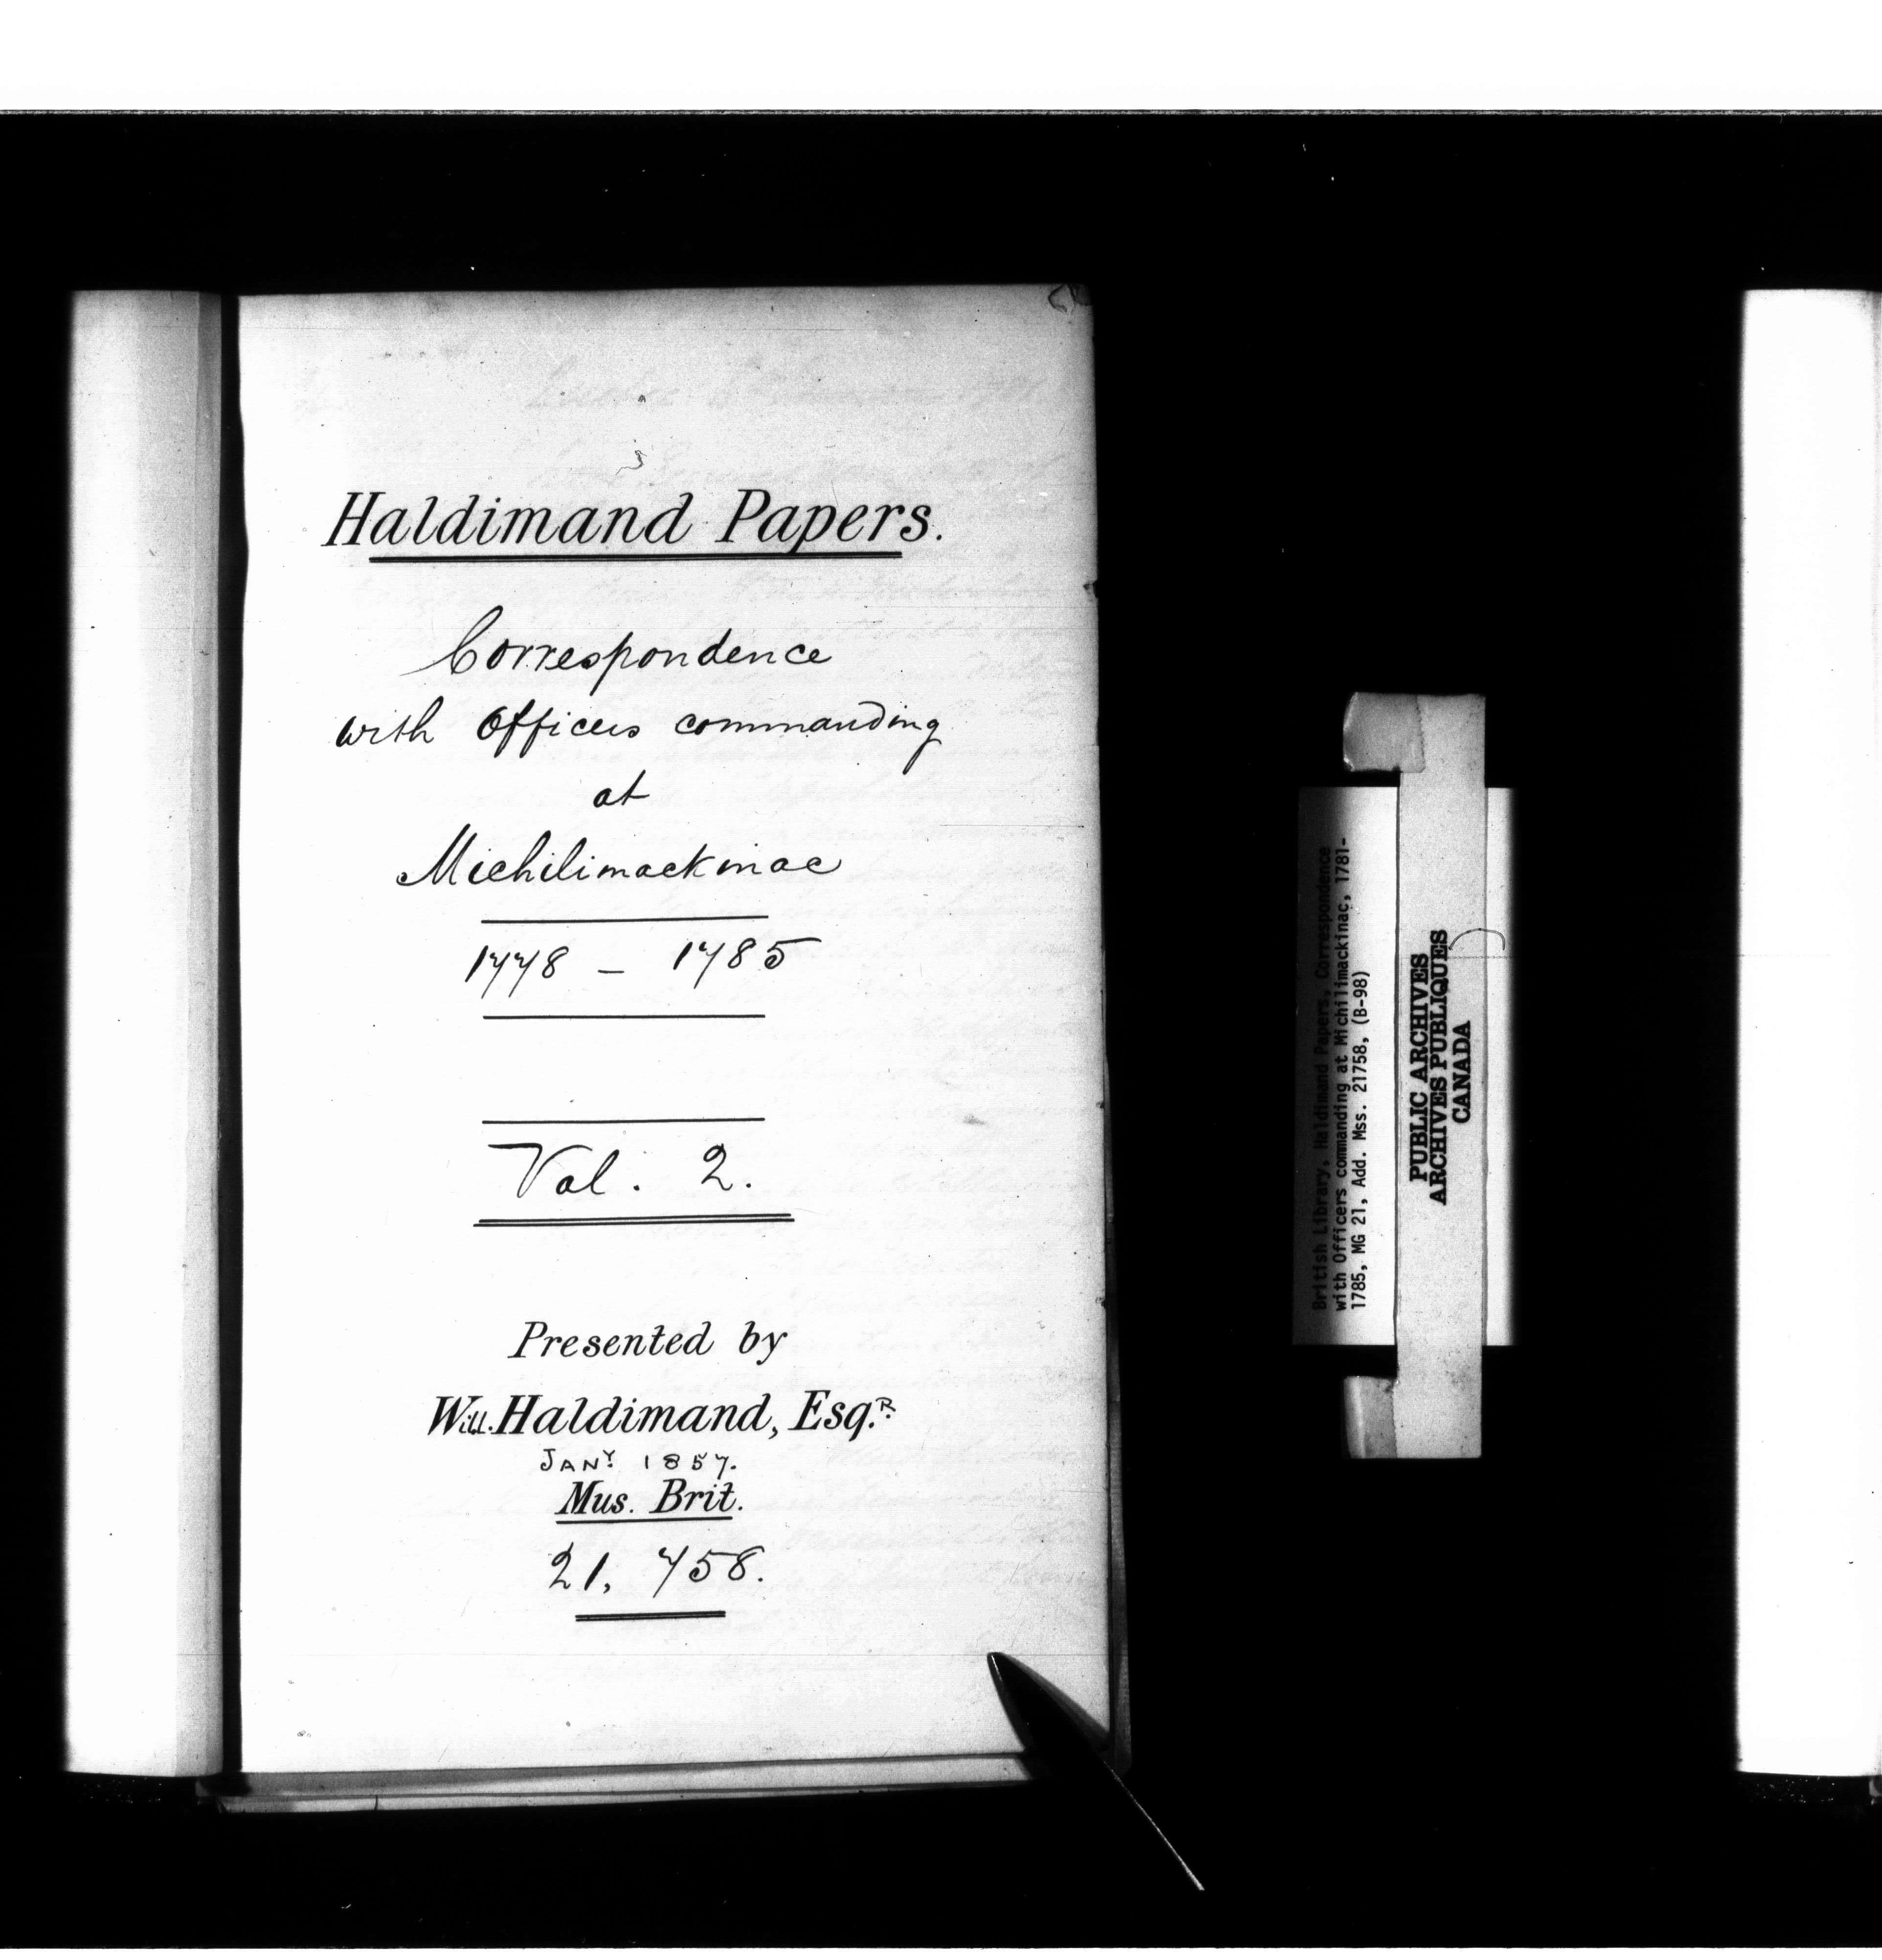 Haldimand Papers.
Correspondence
with Officers commanding
at
Michilimackinac
1778 – 1785
Vol. 2.
Presented by
Will. Haldimand, Esq.R
JANY. 1857.
Mus. Brit.
21, 758.
British Library, Haldimand Papers, Correspondence
with Officers commanding at Michilimackinac, 1781-
1785, MG 21, Add. Mss. 21758, (B-98)
PUBLIC ARCHIVES
ARCHIVES PUBLIQUES
CANADA